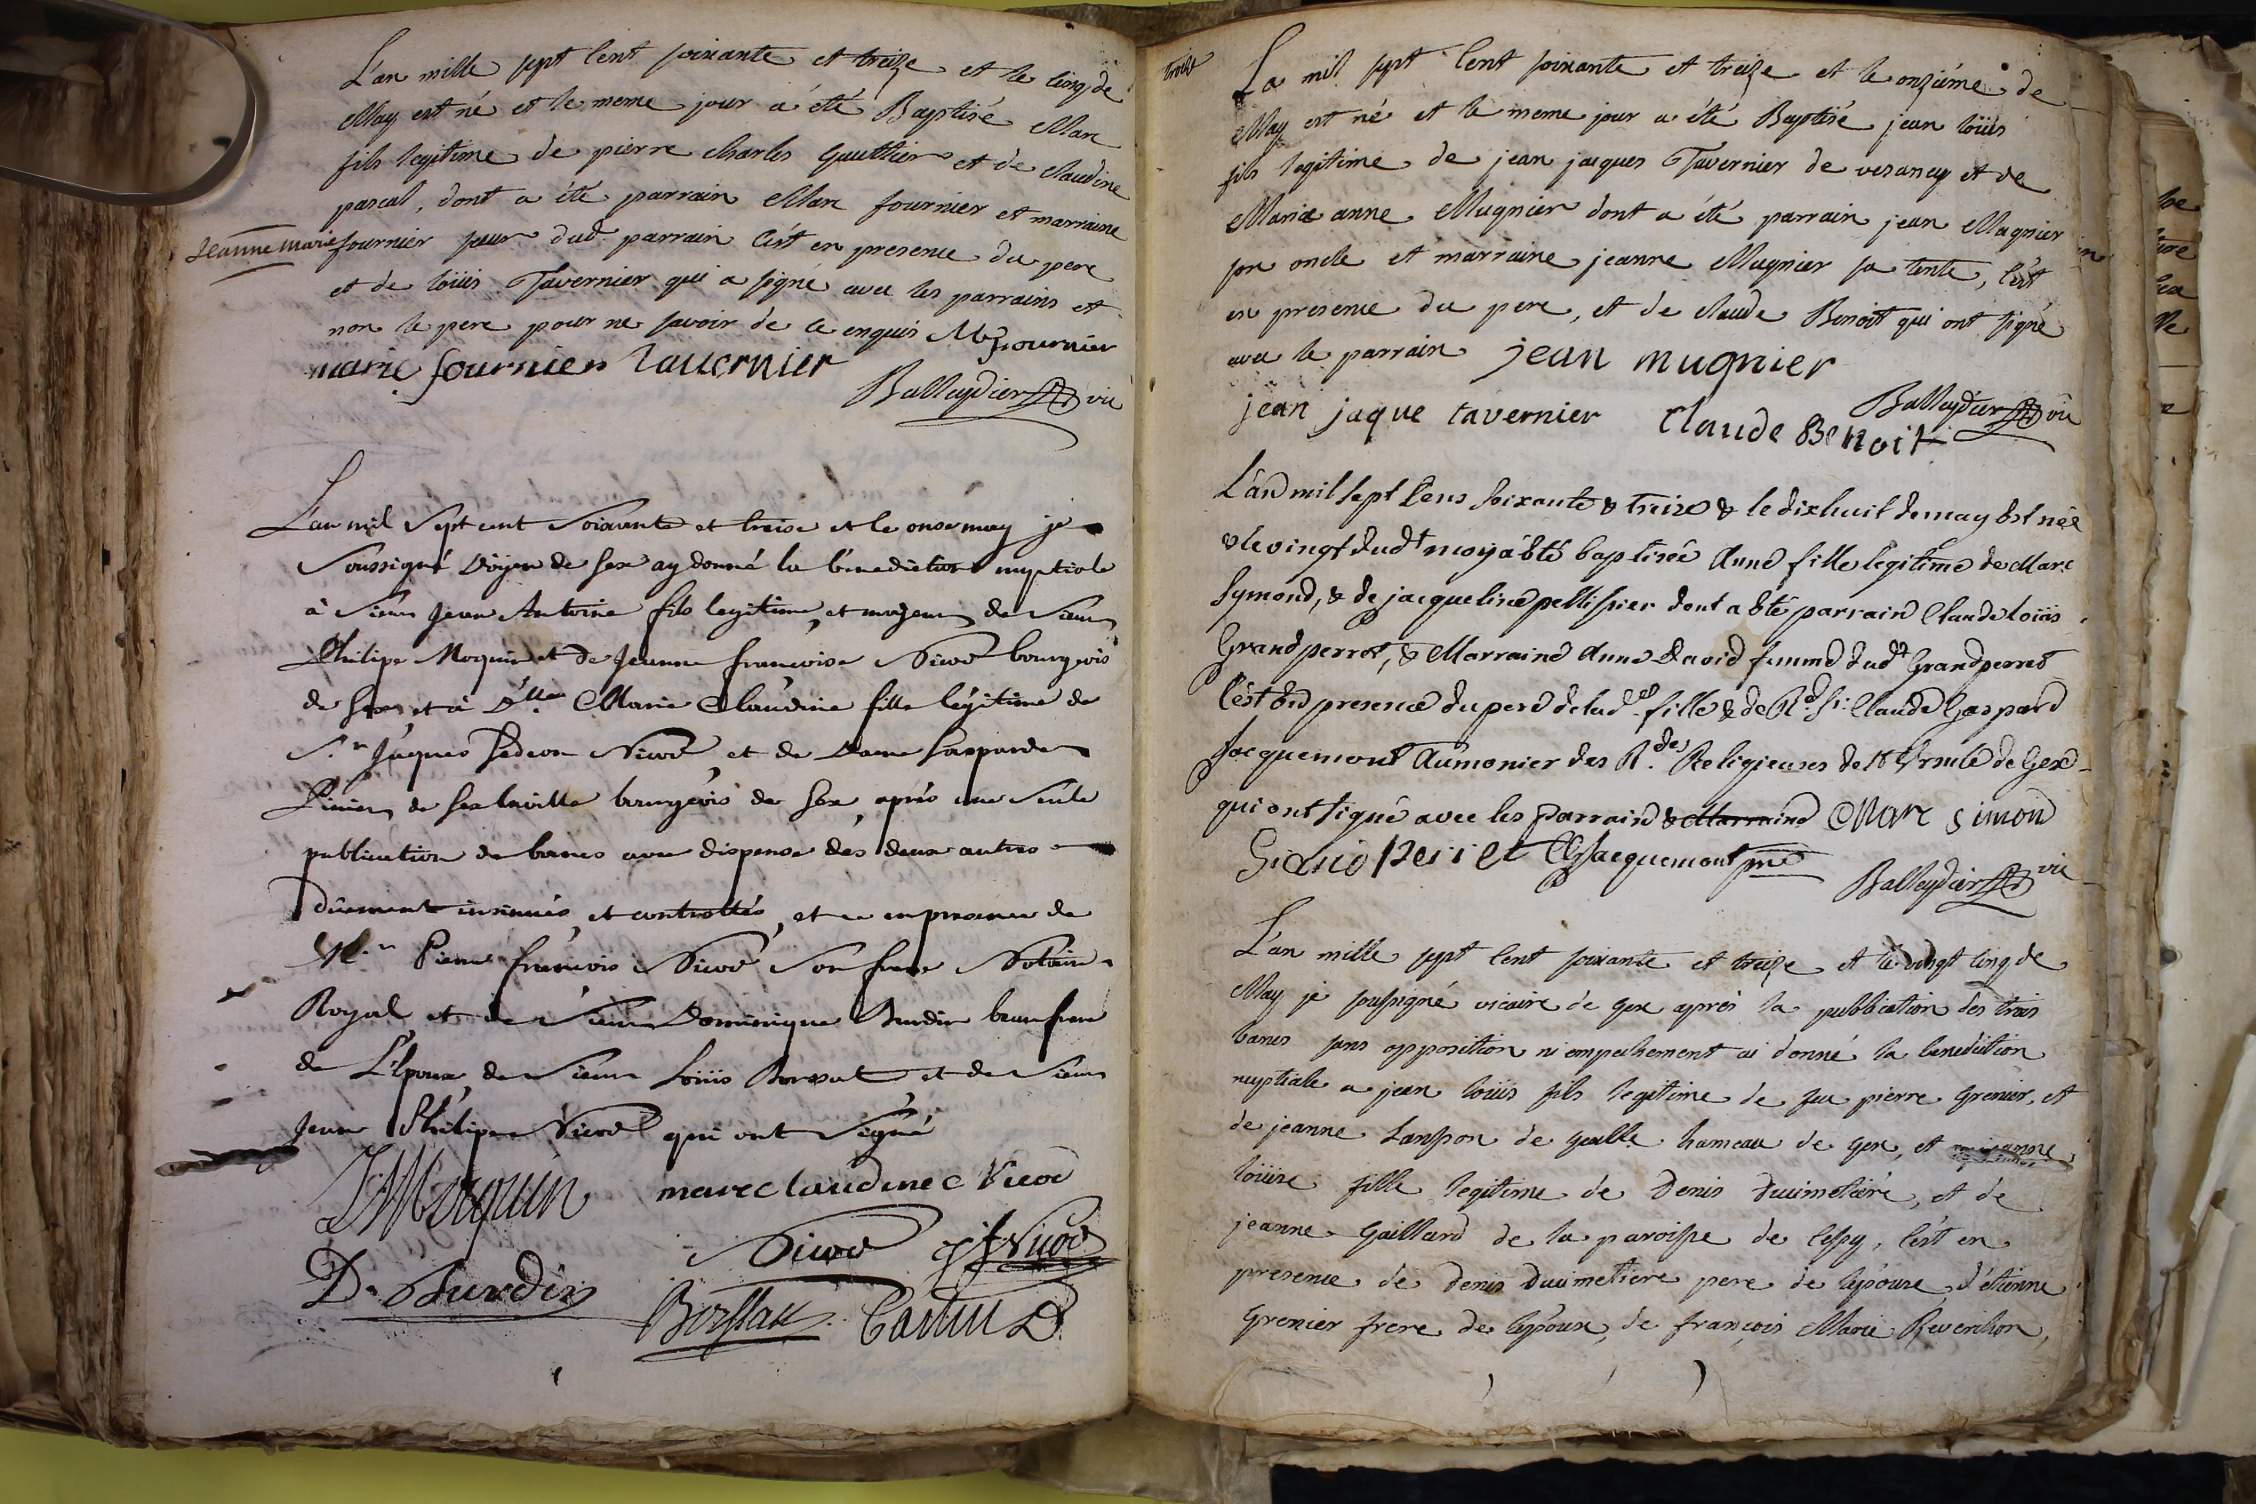 L'an mille sept cent soixante et treize et le cinq de
May est né et le meme jour a été Baptisé Marc
fils legitime de pierre charles Gauthier et de claudine
pascal, dont a été parrain Marc fournier et marraine
Jeanne Marie fournier sœur dud. parrain C'est en presence du pere
et de loüis Tavernier qui a signé avec les parrains et
non le pere pour ne savoir de ce enquis M fournier
marie fournier Tavernier
Balleydier vic
L'an mil sept cent soixante et treise et le onse may je
soussigné Doyen de Gex ay donné la bénédiction nuptiale
à sieur Jean Antoine fils legitime et majeur de sieur
Philipe Moquin et de Jeanne françoise Nicod bourgeois
de Gex et à Dlle Marie Claudine fille légitime de
S.r Jâques Gedeon Nicod et de Dame Gasparde
de Gex la ville bourgeois de Gex après une seule
publication de bancs avec dispense dés deux autres
Düement insinués et controllés, et ce en presence de
M.r Pierre françois Nicod son frere Notaire
Royal et de sieur Dominique Burdin beaufrere
de L'Epoux, de sieur Loüis Borssat et de sieur
Jean Philipe Nicod qui ont signé
J Moquin marie claudinee Nicod
Nicod pf Nicod
D. Burdin
Borssat Castin D
treize
La mil sept Cent soixante et treize et le onziéme de
May est né et le meme jour a été Baptisé jean loüis
fils legitime de jean jacques Tavernier de vesancy et de
Marie anne Mugnier dont a été parrain jean Mugnier
son oncle et marraine jeanne Mugnier sa tente, C'est
en presence du pere, et de claude Benoit qui ont signé
avec le parrain jean mugnier
Balleydier vic
jean jaque tavernier Claude Benoit
L'an mil sept Cens soixante & treize & le dixhuit de may Est née
& le vingt dudt moy a été baptisée Anne fille legitime de Marc
Symond, & de jacqueline pellissier dont a été parrain Claude loüis
Grandperret, & Marraine Anne David femme dudt Grandperret
C'est En presence du pere de lad. fille & de Rd. Sr. Claude Gaspard
Jacquemont Aumonier des R.des Religieuses de Ste Ursule de Gex
qui ont signé avec les parrain & Marraine Marc Simond
Grand Perret CG Jacquemont pre
Balleydier vic
L'an mille sept Cent soixante et treize et le vingt cinq de
May je soussigné vicaire de gex aprés la publication des trois
bancs sans opposition ni empechement ai donné la benediction
nuptiale a jean loüis fils legitime de feu pierre Grenier, et
de jeanne Lanson de gexlle hameau de gex, et jeanne
loüise fille legitime de Denis Duimetiere, et de
jeanne Gaillard de la paroisse de Cessy, C'est en
presence de Denis Duimetiere pere de lepouse, d'etienne
Grenier frere de lepoux, de françois Marie Reverchon,